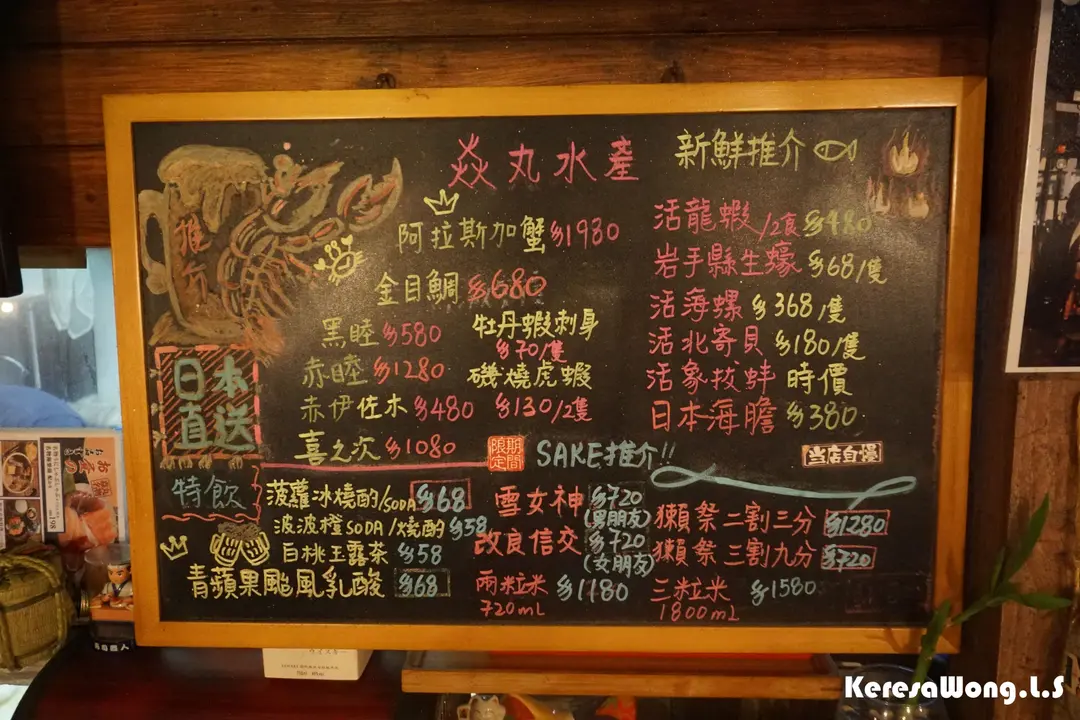 焱丸水產
新鮮推介
推介
阿拉斯加蟹 $1980
金目鯛 $680
黑睦 $580
赤睦 $1280
赤伊佐木 $480
喜之次 $1080
牡丹蝦刺身
$70/隻
磯燒虎蝦
$130/2隻
活龍蝦/2食 $480
岩手縣生蠔 $68/隻
活海螺 $368/隻
活北寄貝 $180/隻
活象拔蚌 時價
日本海膽 $380
日本
直送
期間
限定
SAKE推介!!
當店自慢
特飲
菠蘿冰燒酌/SODA $68
波波橙SODA/燒酌 $58
白桃玉露茶 $58
青蘋果颱風乳酸 $68
雪女神 $720
(男朋友)
改良信交 $720
(女朋友)
兩粒米 $1180
720mL
獺祭二割三分 $1280
獺祭三割九分 $720
三粒米 $1580
1800mL
198
KeresaWong.L.S